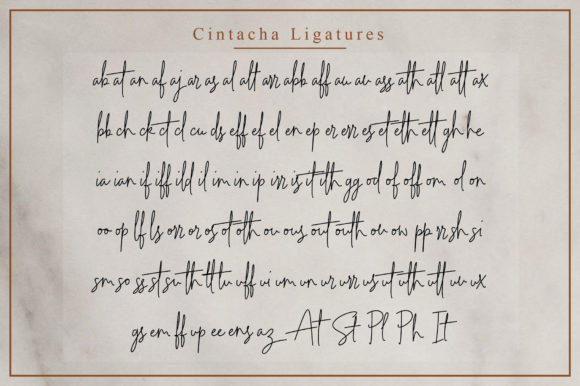 Cintacha Ligatures
ab at an af aj ar as al alt arr abb aff au av ass ath atl att ax
bb ch ck ct cl cu ds eff ef el en ep er err es et eth ett gh he
ia ian if iff ild il im in ip irr is it ith gg od of off om ol on
oo op lf ls orr or os ot oth ou ous out outh ov ow pp rr sh si
sm so ss st su th tt tu uff ui um un ur urr us ut uth utt uv ux
gs em ff up ee ens az At St Pl Ph It